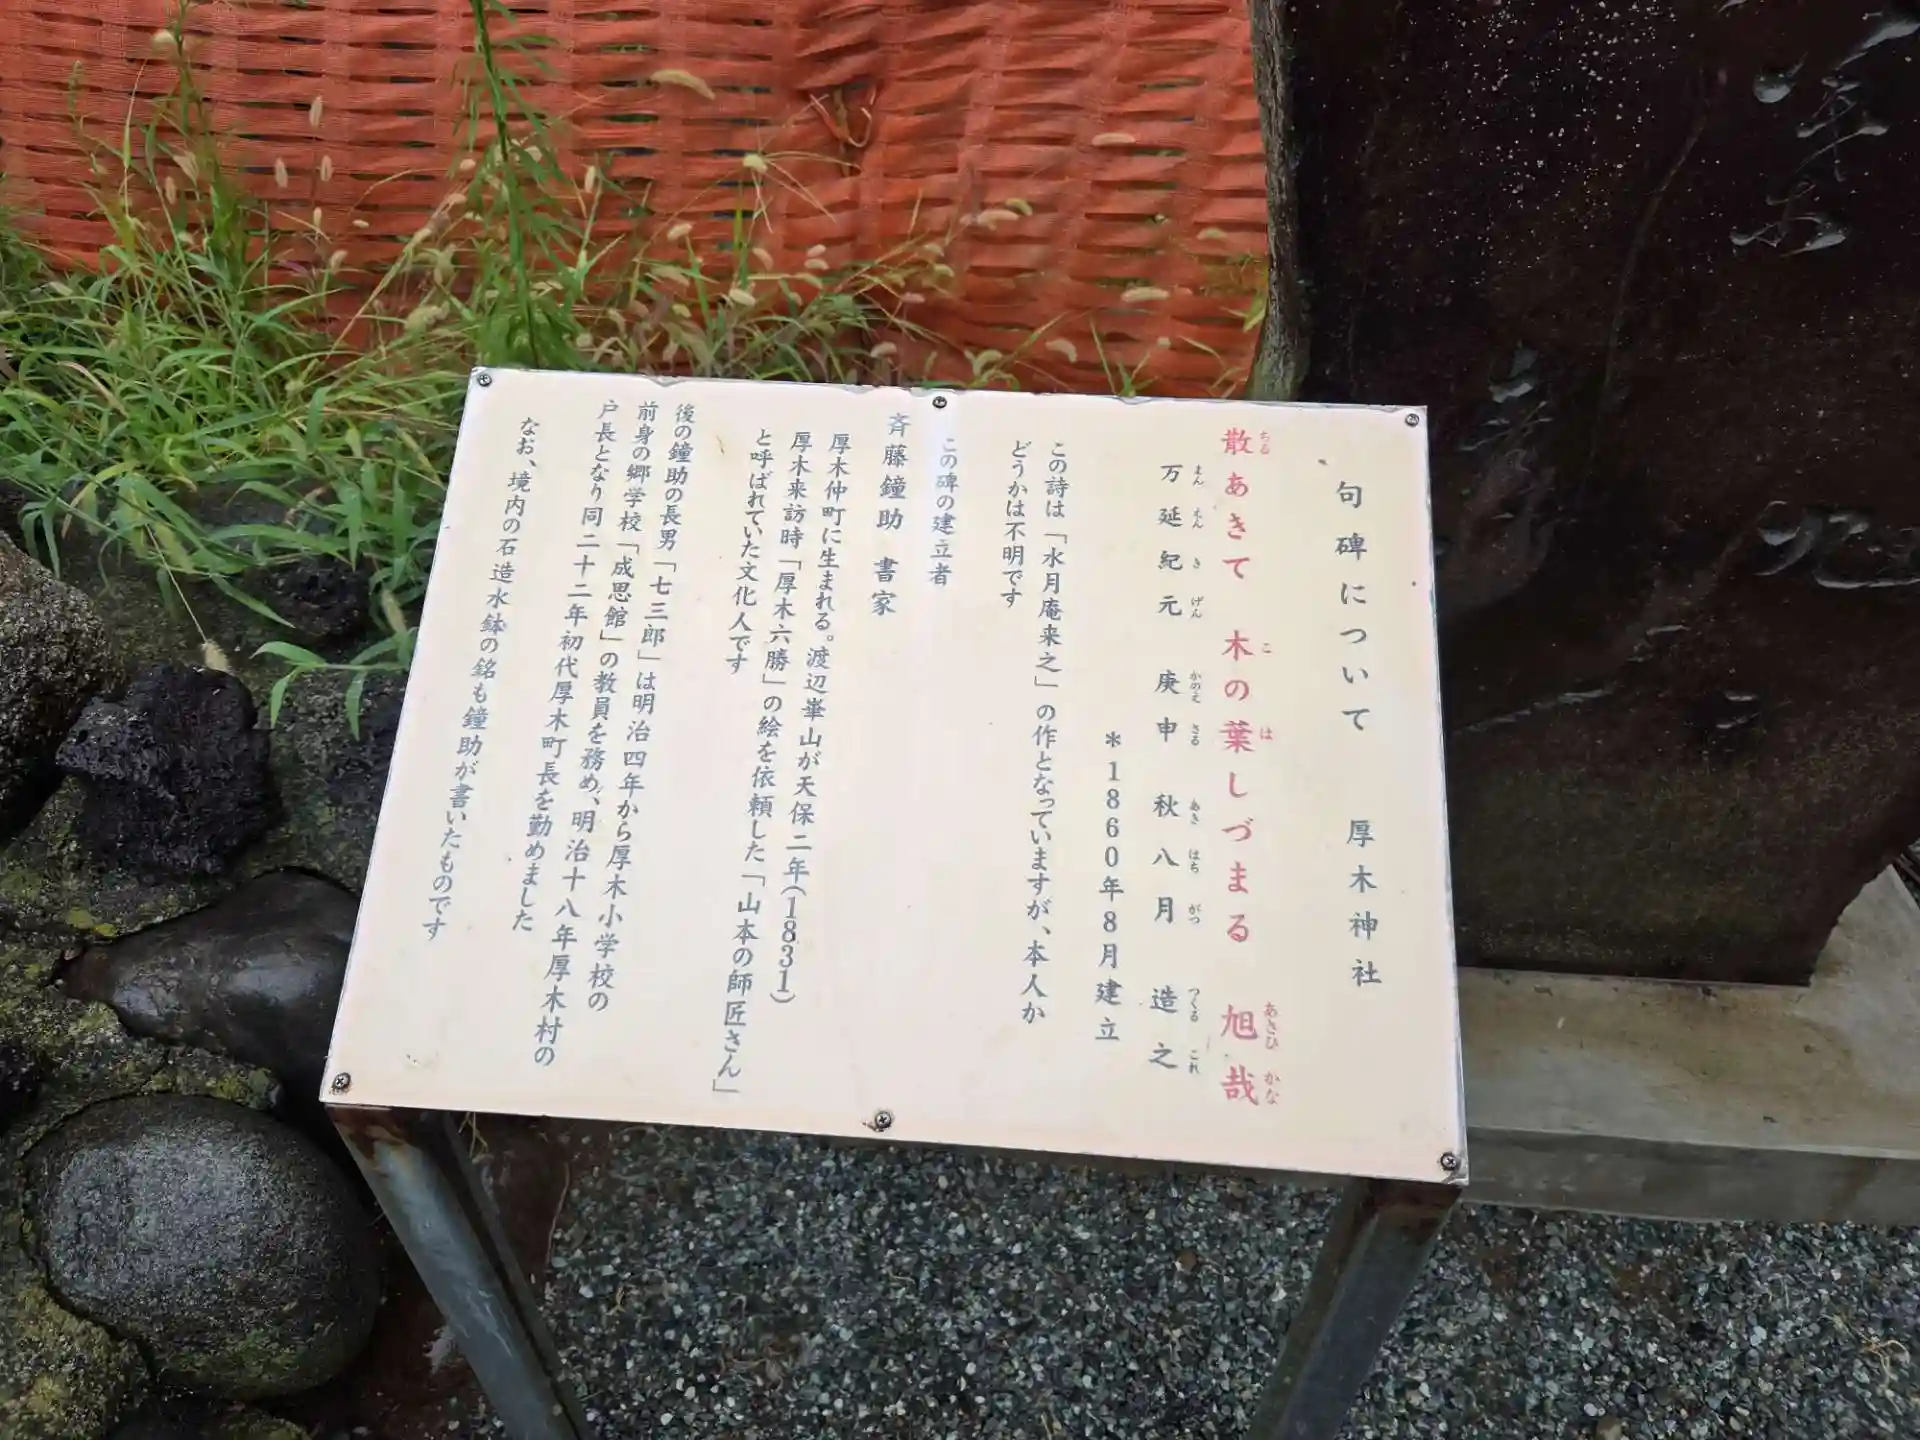 句碑について 厚木神社
散あきて 木の葉しづまる 旭哉
ちる こ は あさひ かな
万延紀元 庚申 秋八月 造之
まん えん き げん かのえ さる あき はち がつ つくる これ
＊1860年8月建立
この詩は「水月庵来之」の作となっていますが、本人か
どうかは不明です
この碑の建立者
斉藤鐘助 書家
厚木仲町に生まれる。渡辺崋山が天保二年(1831)
厚木来訪時「厚木六勝」の絵を依頼した「山本の師匠さん」
と呼ばれていた文化人です
後の鐘助の長男「七三郎」は明治四年から厚木小学校の
前身の郷学校「成思館」の教員を務め、明治十八年厚木村の
戸長となり同二十二年初代厚木町長を勤めました
なお、境内の石造水鉢の銘も鐘助が書いたものです